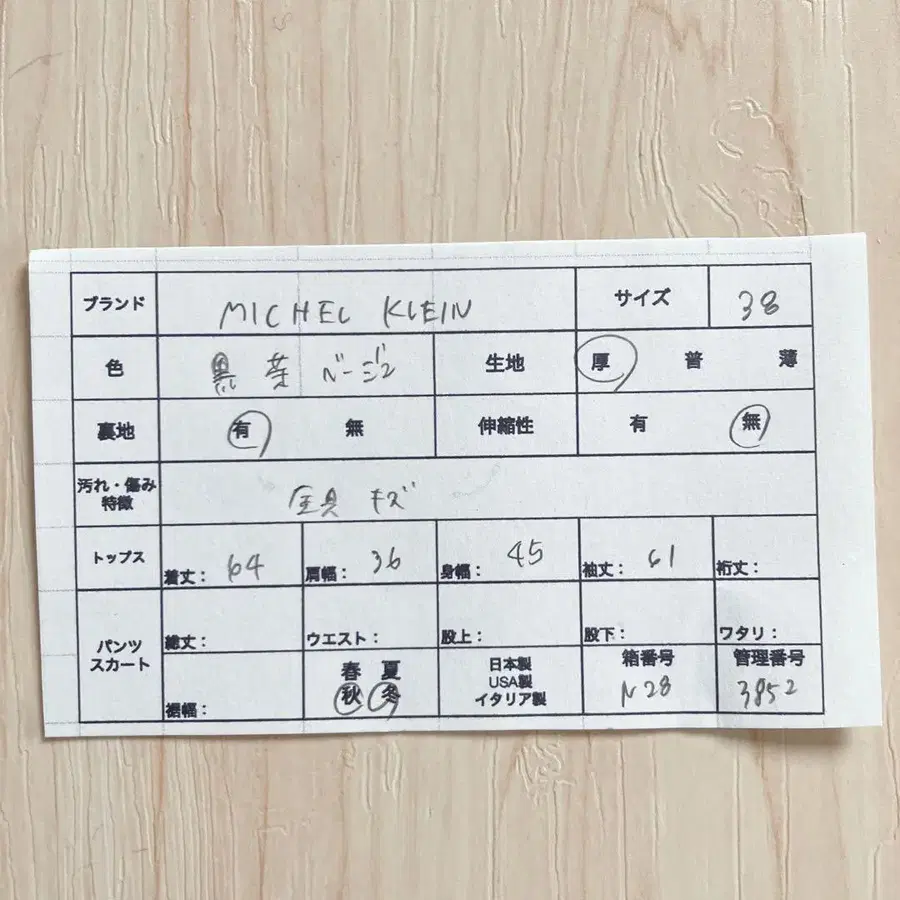 ブランド MICHEL KLEIN サイズ 38
色 黒 茶 ベージュ 生地 厚 普 薄
裏地 有 無 伸縮性 有 無
汚れ・傷み
特徴 金具 キズ
トップス 着丈： 64 肩幅： 36 身幅： 45 袖丈： 61 裄丈：
パンツ
スカート
総丈： ウエスト： 股上： 股下： ワタリ：
裾幅：
春 夏
秋 冬
日本製
USA製
イタリア製
箱番号
N28
管理番号
3852